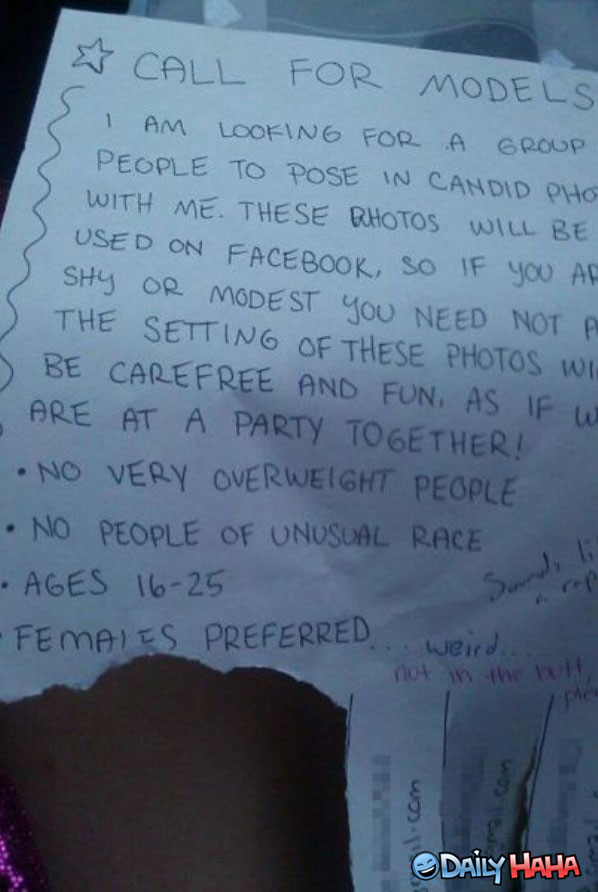 CALL FOR MODELS
I AM LOOKING FOR A GROUP
PEOPLE TO POSE IN CANDID PHO
WITH ME. THESE PHOTOS WILL BE
USED ON FACEBOOK, SO IF YOU AR
SHY OR MODEST YOU NEED NOT A
THE SETTING OF THESE PHOTOS WI
BE CAREFREE AND FUN, AS IF W
ARE AT A PARTY TOGETHER!
• NO VERY OVERWEIGHT PEOPLE
• NO PEOPLE OF UNUSUAL RACE
• AGES 16-25
FEMALES PREFERRED... weird....
Sounds li
a rap
not in the butt,
ple
il.com
.com
DAILY HAHA